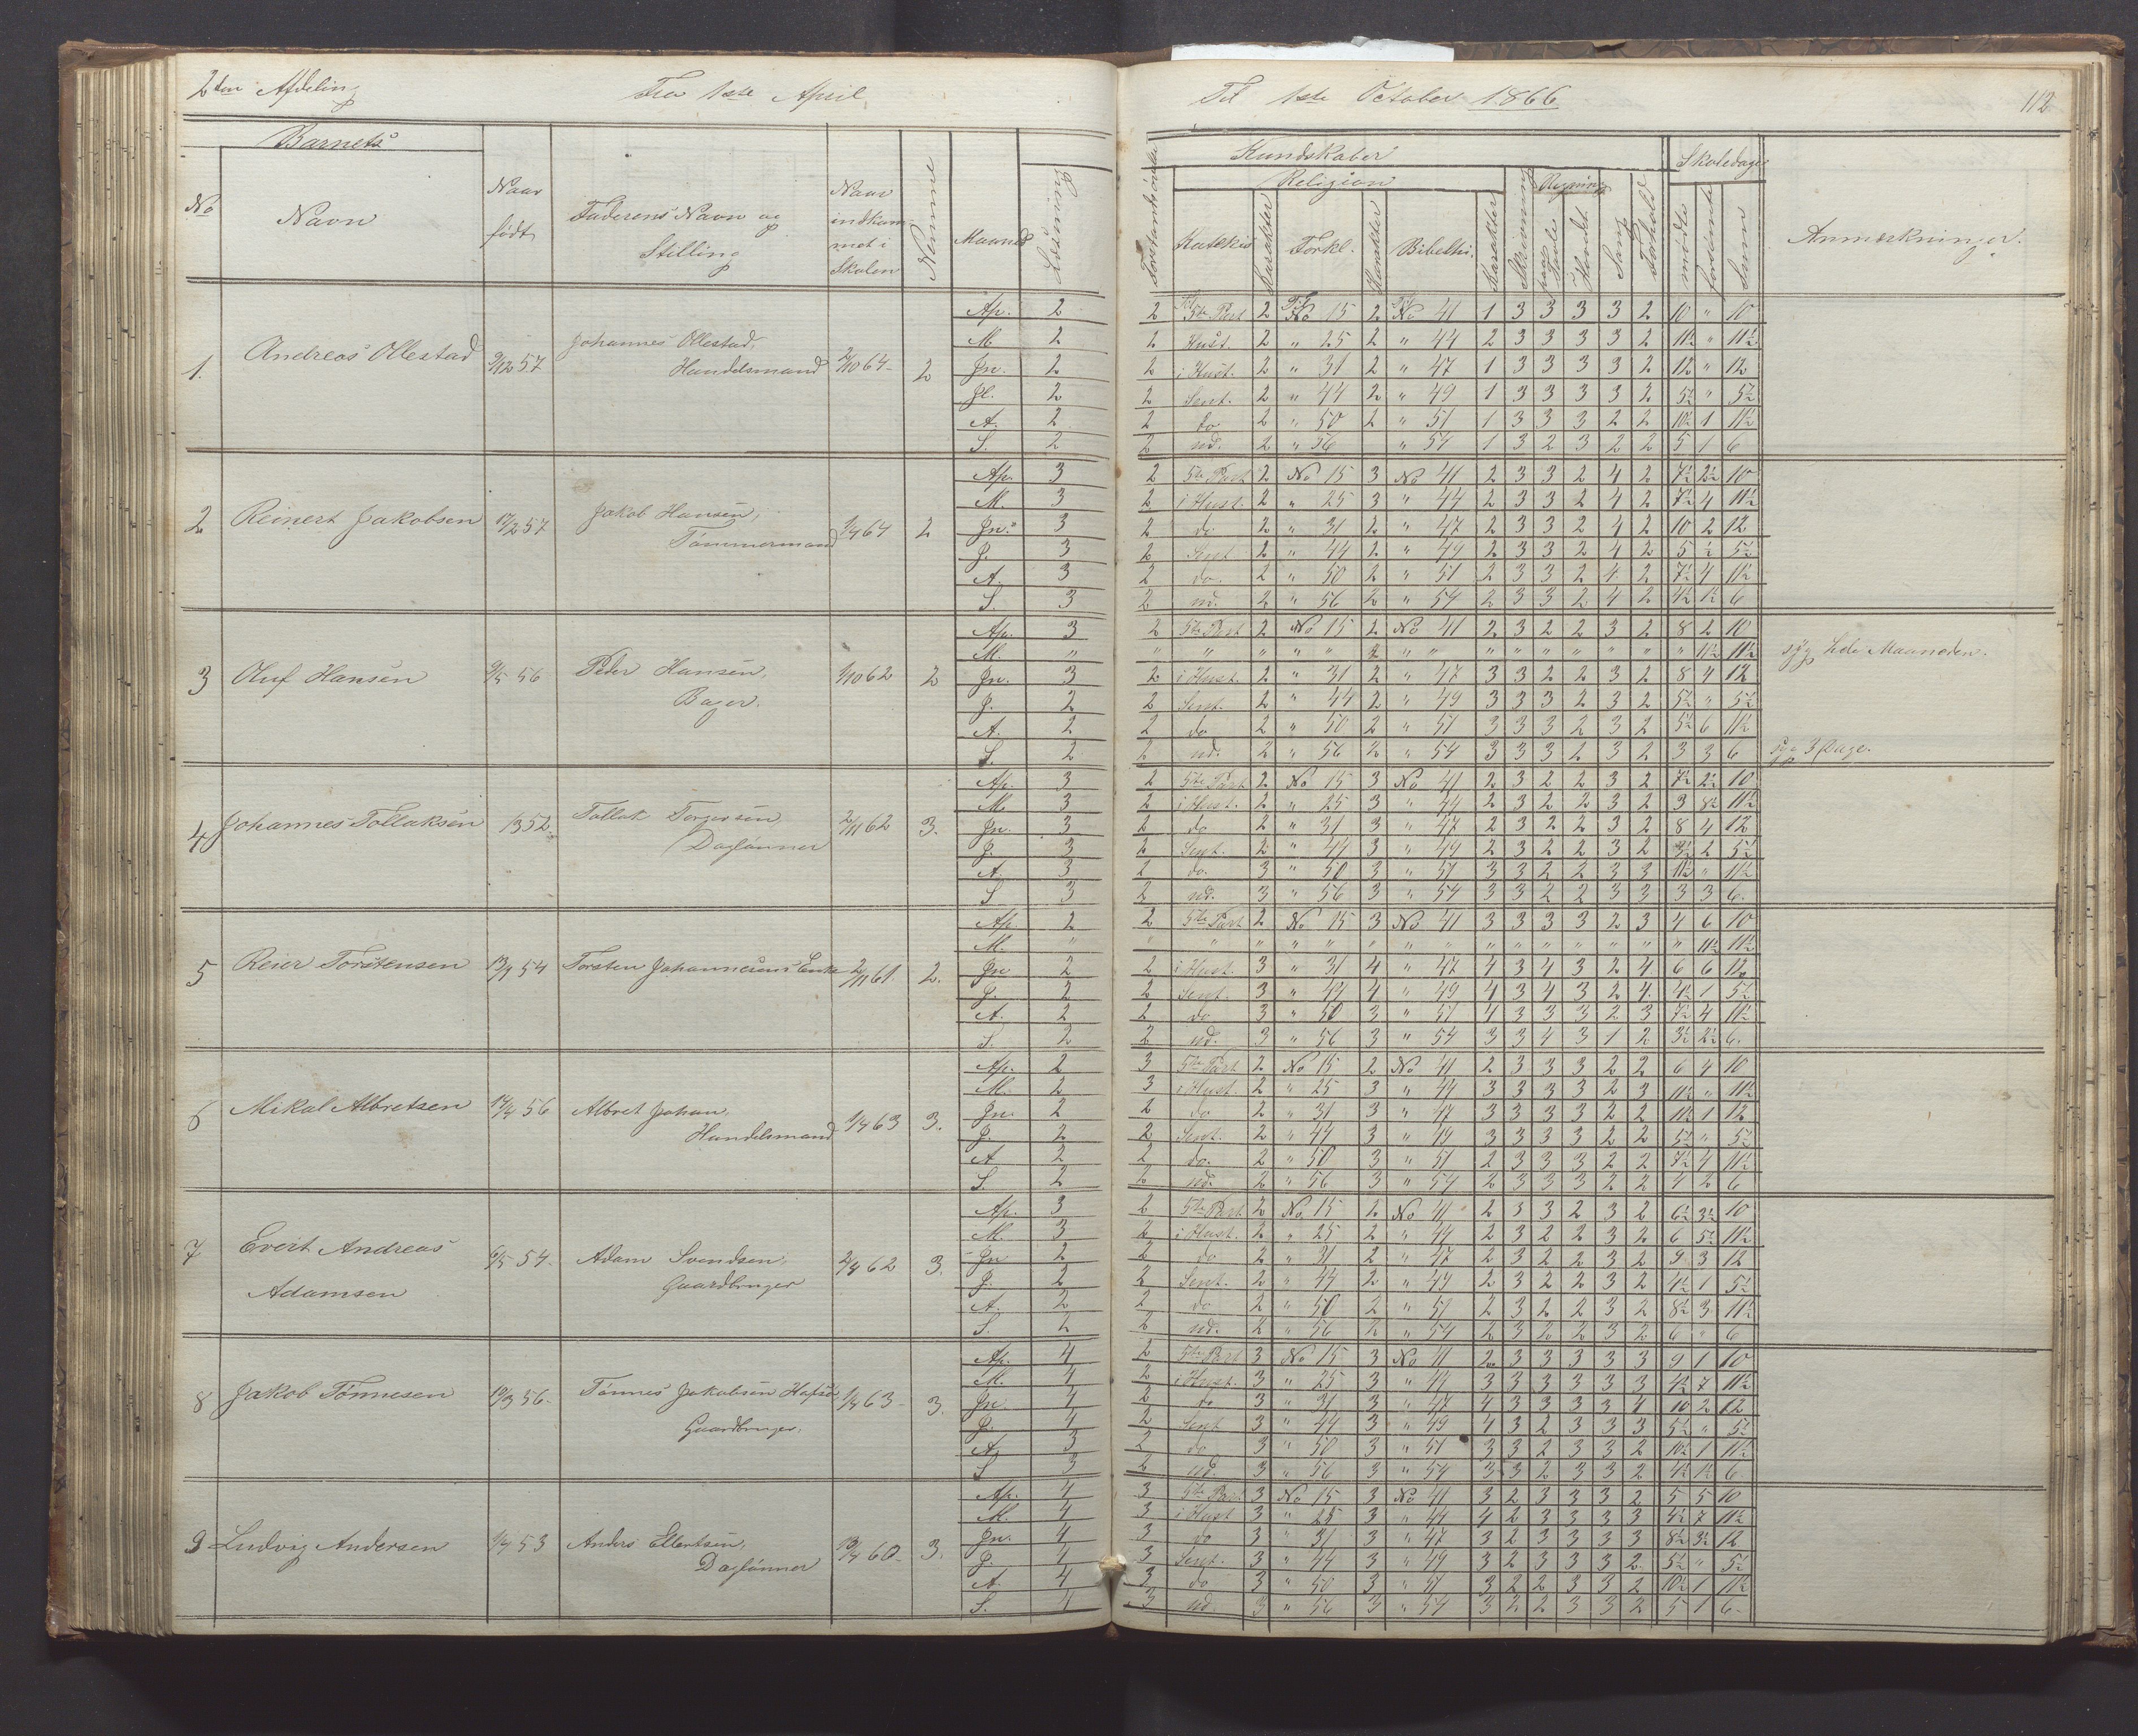 2den Afdeling
Fra 1ste April
Til 1ste October 1866
112
Barnets
No
Navn
Naar født
Faderens Navn og Stilling
Naar indkommet i Skolen
Nemme
Maaned
Læsning
Forstandsøvelse
Kundskaber
Religion
Katekis
Karakter
Forkl.
Karakter
Bibelhi.
Karakter
Skrivning
Regning
paa Tavle
i Hovedet
Sang
Forhold
Skoledage
mødte
forsømte
Sum
Anmærkninger.
1. Andreas Ollestad 9/12 57 Johannes Ollestad, Handelsmand 2/10 64 - 2
Ap. 2 2 Til 5te Part 2 Til No 15 2 Til No 41 1 3 3 3 3 2 10 " 10
M 2 2 Hust. 2 " 25 2 " 44 2 3 3 3 3 2 11½ " 11½
Jn. 2 2 i Hust. 2 " 31 2 " 47 1 3 3 3 3 2 12 " 12
Jl. 2 2 Sent. 2 " 44 2 " 49 1 3 3 3 3 2 5½ " 5½
A. 2 2 do 2 " 50 2 " 51 1 3 3 3 2 2 10½ 1 11½
S. 2 2 ud. 2 " 56 " 54 1 3 2 3 2 2 5 1 6
2 Reinert Jakobsen 17/2 57 Jakob Hansen, Tømmermand 1/4 64 2
Ap. 3 2 5te Part 2 No 15 3 No 41 2 3 3 2 4 2 7½ 2½ 10
M. 3 2 i Hust. 2 " 25 3 " 44 2 3 3 2 4 2 7½ 4 11½
Jn. 3 2 do 2 " 31 2 " 47 2 3 3 2 4 2 10 2 12
J. 3 2 Sent 2 " 44 2 " 49 2 3 3 2 4 2 5 ½ 5½
A. 3 2 do. 2 " 50 2 " 51 2 3 3 2 4 2 7½ 4 11½
S. 3 2 ud. 2 " 56 2 " 54 2 3 3 2 4 2 4½ 1½ 6
3 Oluf Hansen 9/5 56 Peder Hansen, Bager. 1/10 62 2
Ap. 3 2 5te Part 2 No 15 2 No 41 2 3 2 2 3 2 8 2 10
M. " " " " " " " " " " " " " " " 11½ 11½ syg hele Maaneden.
Jn. 3 2 i Hust. 2 " 31 2 " 47 3 3 2 2 3 2 8 4 12
J. 2 2 Sent. 2 " 44 2 " 49 3 3 3 2 3 2 5½ " 5½
A. 2 2 do 2 " 50 2 " 51 3 3 3 2 3 2 5½ 6 11½
S. 2 2 ud. 2 " 56 2 " 54 3 3 3 2 3 2 3 3 6 syg 3 Dage.
4 Johannes Tollaksen 1352. Tollak Torgersen Daglønner 2/11 62 3.
Ap. 3 2 5te Part 2 No 15 3 No 41 2 3 2 2 3 2 7½ 2½ 10
M. 3 2 i Hust. 2 " 25 3 " 44 2 3 2 2 3 2 3 8½ 11½
Jn. 3 2 do 2 " 31 3 " 47 2 3 2 2 3 2 8 4 12
J. 3 2 Sent. 2 " 44 3 " 49 2 3 2 2 3 2 3½ 2 5½
A. 3 2 do. 3 " 50 3 " 51 3 3 2 2 3 3 11½ " 11½
S 3 2 ud. 3 " 56 3 " 54 3 3 2 2 3 3 3 3 6.
5 Reier Torstensen 13/1 54 Torsten Johannesens Enke 2/11 61. 2.
Ap. 2 2 5te Part 2 No 15 3 No 41 3 3 3 3 2 3 4 6 10
M. " " " " " " " " " " " " " " " " 11½ 11½
Jn 2 2 i Hust. 3 " 31 4 " 47 4 3 4 3 2 4 6 6 12
J. 2 2 Sent. 3 " 44 4 " 49 4 3 4 3 2 4. 4½ 1 5½
A. 2 2 do 3 " 50 3 " 51 4 3 3 3 2 3 7½ 4 11½
S. 2 2 ud. 3 " 56 3 " 54 3 3 4 3 1 2 3½ 2½ 6.
6 Mikal Albretsen 14/4 56 Albret Johan, Handelsmand 1/4 63 3.
Ap. 2 3 5te Part 2 No 15 2 No 41 2 3 3 3 2 2 6 4 10
M. 2 3 i Hust. 2 " 25 3 " 44 3 3 3 3 2 3 11½ " 11½
Jn. 2 2 do 2 " 31 3 " 47 3 3 3 3 2 2 11 1 12
J. 2 2 Sent. 2 " 44 3 " 49 3 3 3 3 2 2 5½ " 5½
A 2 2 do. 2 " 50 3 " 51 2 3 3 3 2 2 7½ 4 11½
S. 2 2 ud. 2 " 56 3 " 54 2 3 3 3 2 2 4 2 6
7 Evert Andreas Adamsen 6/5 54- Adam Svendsen, Gaardbruger 2/4 62 3.
Ap. 3 2 5te Part 2 No 15 2 No 41 2 3 3 2 3 2 6½ 3½ 10
M. 3 2 i Hust. 2 " 25 2 " 44 2 3 2 2 3 2 6 5½ 11½
Jn 2 2 do 2 " 31 2 " 47 2 3 2 2 3 2 9 3 12
J. 2 2 Sent. 2 " 44 2 " 49 2 3 2 2 3 2 4½ 1 5½
A. 2 2 do 2 " 50 2 " 51 2 3 2 2 3 2 8½ 3 11½
S. 2 2 ud. 2 " 56 2 " 54 2 3 2 2 3 2 6 " 6
8 Jakob Tønnesen 19/3 56- Tønnes Jakobsen Gaardbruger, 1/4 63- 3.
Ap. 4 2 5te Part 3 No 15 3 No 41 2 3 3 3 3 3 9 1 10
M. 4 2 i Hust. 3 " 25 3 " 44 3 3 3 3 3 3 4½ 7 11½
Jn. 4 2 do 3 " 31 3 " 47 4 3 3 3 3 4 10 2 12
J. 4 2 Sent 3 " 44 3 " 49 4 3 2 3 3 3 5½ " 5½
A. 3 2 do 3 " 50 3 " 51 3 3 2 3 3 2 10½ 1 11½
S 3 2 ud. 3 " 56 3 " 54 3 3 2 3 3 2 4½ 1½ 6
9 Ludvig Andersen 1/4 53 Anders Ellertsen, Daglønner 19/4 60- 3.
Ap. 4 3 5te Part 3 No 15 3 No 41 3 2 3 3 3 2 5 5 10
M. 4 3 i Hust 3 " 25 3 " 44 4 2 3 3 3 3 4½ 7 11½
Jn. 4 3 do 3 " 31 3 " 47 3 2 3 3 3 3 8½ 3½ 12
J. 4 3 Sent. 3 " 44 3 " 49 3 2 3 3 3 2. 5½ " 5½
A. 4 3 do 3 " 50 3 " 51 3 2 2 3 3 2 10½ 1 11½
S. 4 3 ud. 3 " 56 3 " 54 3 2 2 3 3 2 5 1 6-